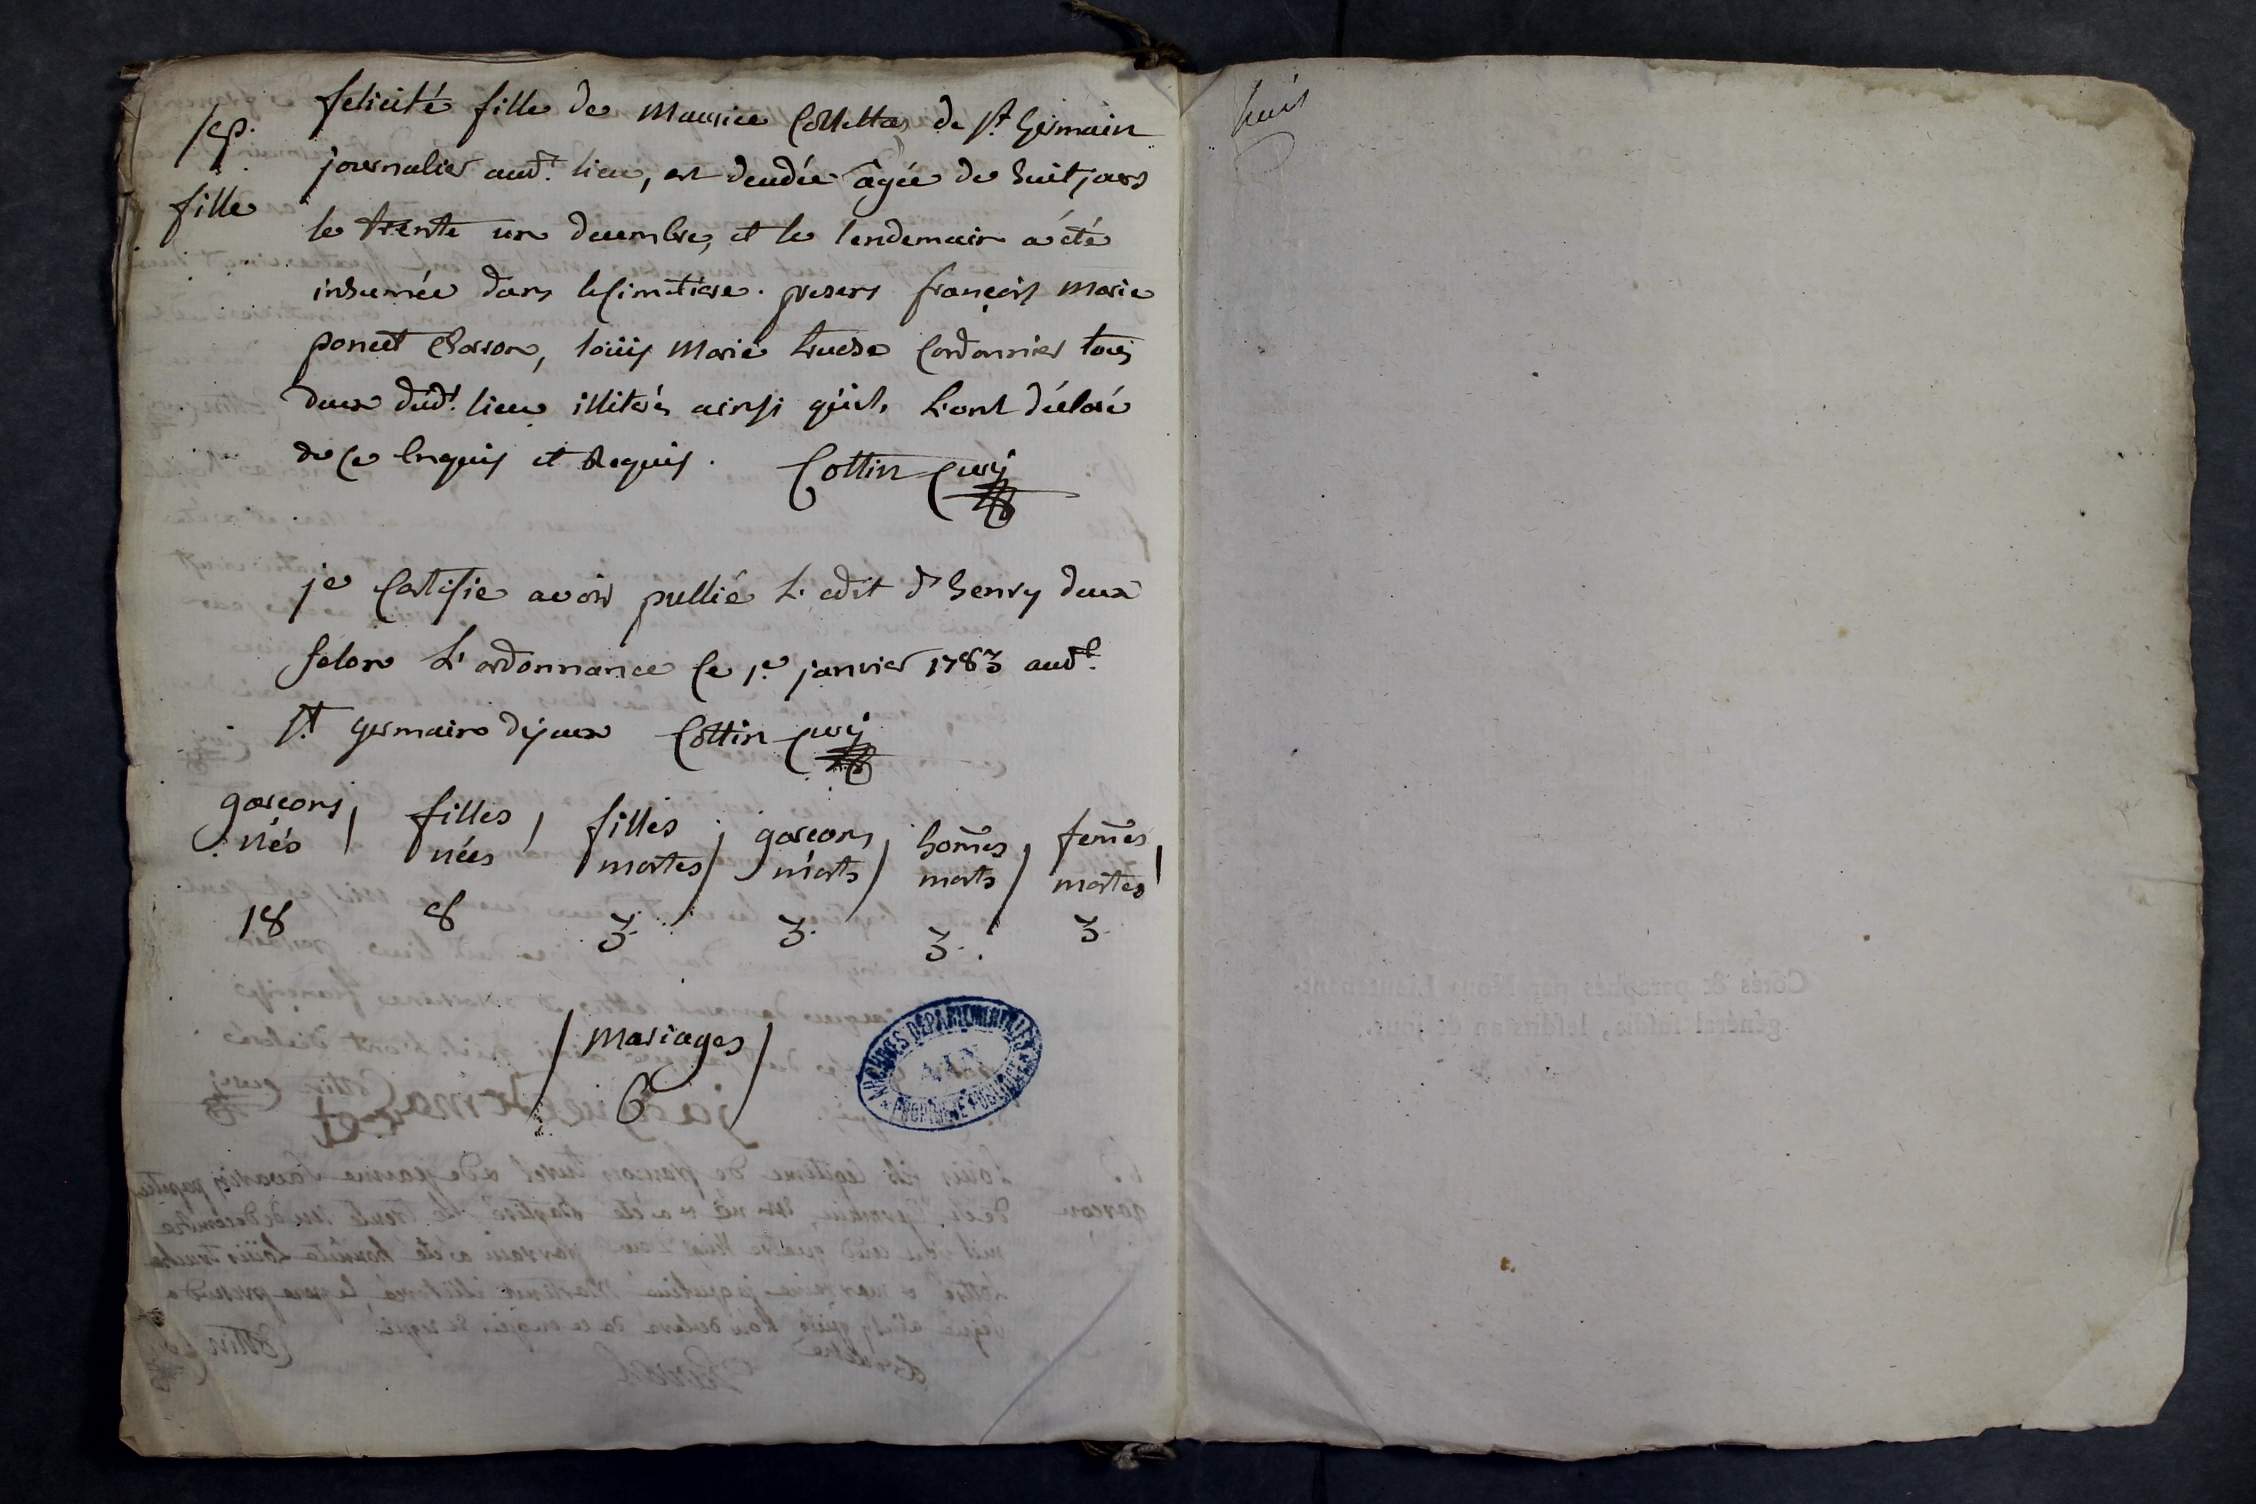 sep.
fille
felicité fille de Maurice Collettas de st germain
journalier aud.t lieu, est décédée âgée de huit jours
le trente un decembre, et le lendemain a été
inhumée dans le cimetiere. presens françois marie
poncet charon, loüis Marie truche Cordonnier tous
deux dud.t lieu illiterés ainsi qu'ils L'ont déclaré
de ce Enquis et Requis. Cottin Curé
je Certifie avoir publié L'edit d'henry deux
selon L'ordonnance Ce 1.er janvier 1783 aud.t
st germain dejoux Cottin Curé
garçons nés / filles nées / filles mortes / garçons morts / hom̄es morts / fem̄es mortes /
18 8 3. 3. 3. 3.
/ mariages /
/ 6 /
ARCHIVES DÉPARTEMENTALES
AIN
PROPRIÉTÉ PUBLIQUE
huit